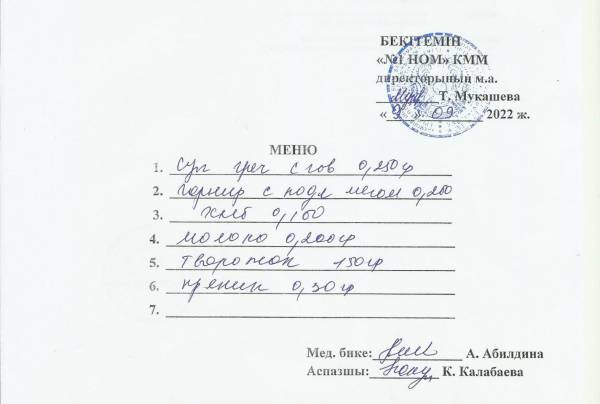 БЕКІТЕМІН
«№1 НОМ» КММ
директорының м.а.
Т. Мукашева
«9» 09 2022 ж.
МЕНЮ
1. Суп греч с гов 0,250гр
2. Гарнир с подл мясом 0,200
3. Хлеб 0,100
4. молоко 0,200гр
5. творожок 150гр
6. пряник 0,30гр
7.
Мед. бике: А. Абилдина
Аспазшы: К. Калабаева